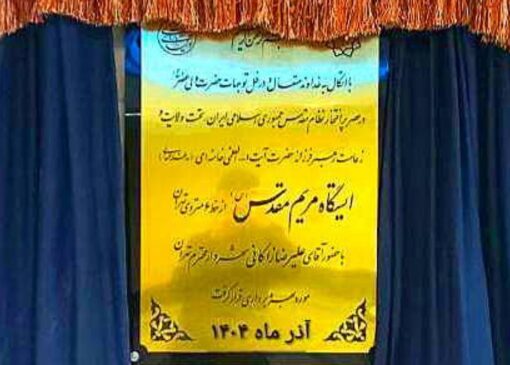 بسم الله الرحمن الرحیم
با اتکال به خداوند متعال و در ظل توجهات حضرت ولی عصر (عج)
در عصر پر افتخار نظام مقدس جمهوری اسلامی ایران، تحت ولایت و
زعامت رهبر فرزانه حضرت آیت ا... العظمی خامنه ای (مدظله العالی)
ایستگاه مریم مقدس (س) از خط ۶ متروی تهران
با حضور آقای علیرضا زاکانی شهردار محترم تهران
مورد بهره برداری قرار گرفت
آذر ماه ۱۴۰۴